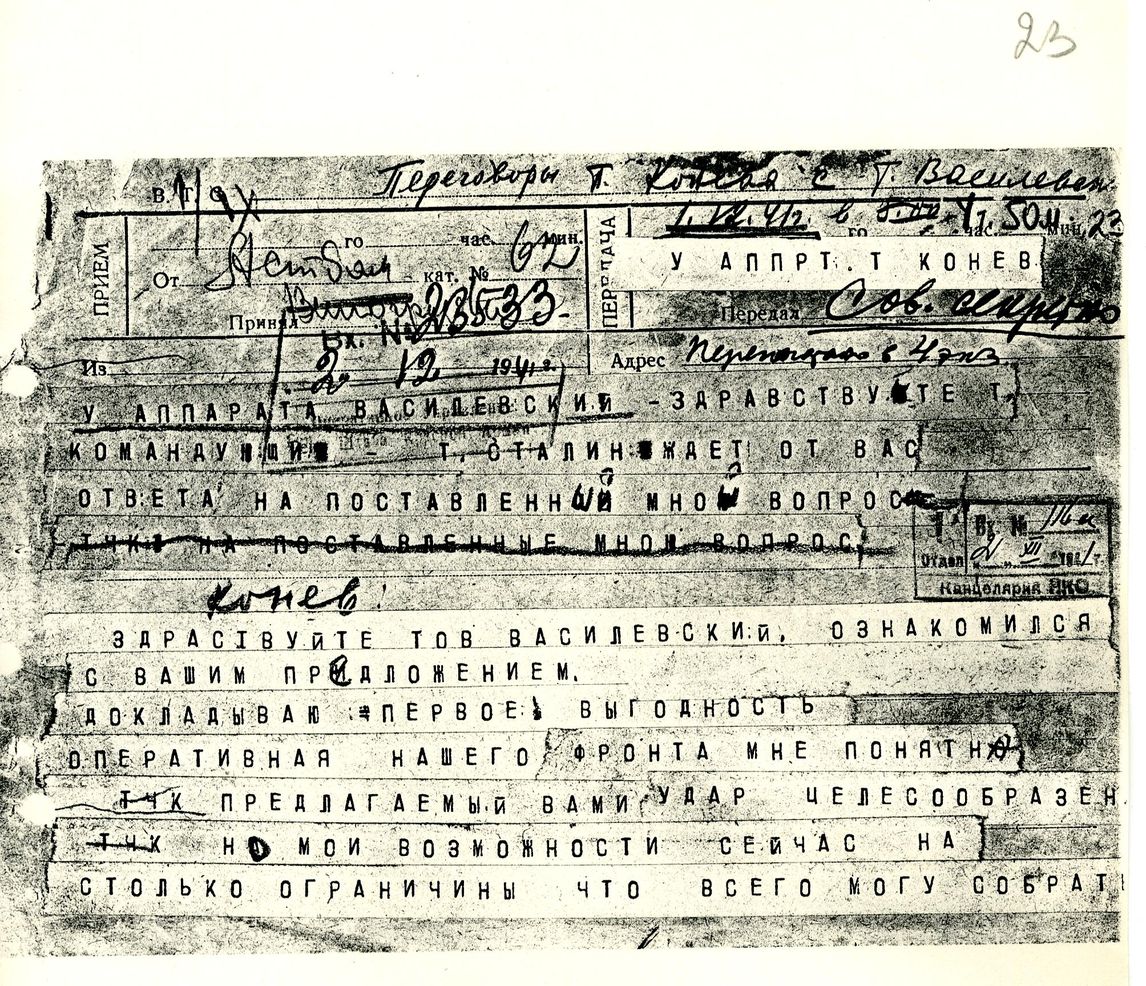 23
Переговоры т. Конева с т. Василевск
1.12.41г. в 4ч. 50м.
час. мин.
ПРИЕМ
От
кат. №
62
Принял
Вх. №
2 12 1941г.
Из
ПЕРЕДАЧА
У АППРТ. Т КОНЕВ
Передал Сов. секретно
Адрес Перепечатано в 4 экз
У АППАРАТА ВАСИЛЕВСКИЙ - ЗДРАВСТВУЙТЕ Т.
КОМАНДУЮЩИЙ - Т. СТАЛИН ЖДЕТ ОТ ВАС
ОТВЕТА НА ПОСТАВЛЕННЫЙ МНОЙ ВОПРОС
ТЧК НА ПОСТАВЛЕННЫЕ МНОЮ ВОПРОС
Вх. № 116
Отдел 2 XII 1941г.
Канцелярия НКО
Конев:
ЗДРАСТВУЙТЕ ТОВ ВАСИЛЕВСКИЙ. ОЗНАКОМИЛСЯ
С ВАШИМ ПРЕДЛОЖЕНИЕМ.
ДОКЛАДЫВАЮ =ПЕРВОЕ: ВЫГОДНОСТЬ
ОПЕРАТИВНАЯ НАШЕГО ФРОНТА МНЕ ПОНЯТНА
ТЧК ПРЕДЛАГАЕМЫЙ ВАМИ УДАР ЦЕЛЕСООБРАЗЕН.
ТЧК НО МОИ ВОЗМОЖНОСТИ СЕЙЧАС НА
СТОЛЬКО ОГРАНИЧИНЫ ЧТО ВСЕГО МОГУ СОБРАТЬ